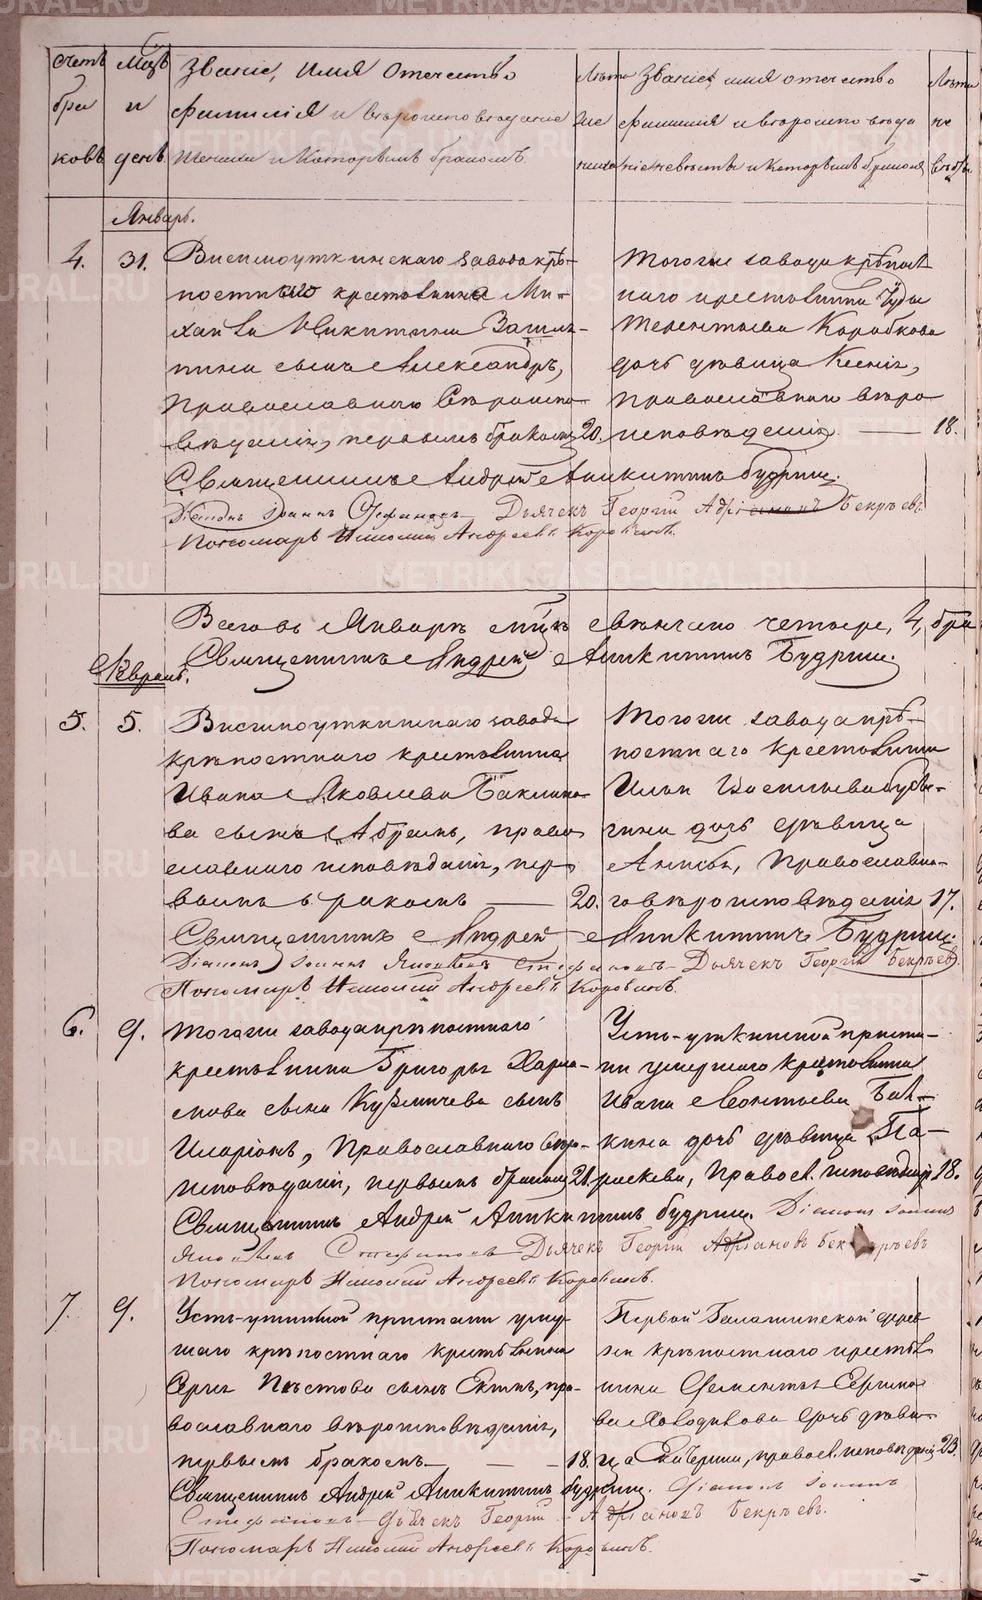 счетъ бра ковъ
Мцъ и день
Званіе, имя отечество
фамилія и вѣроисповѣданіе
жениха и которымъ бракомъ
Лѣта же ниха
Званіе, имя отечество
фамилія и вѣроисповѣда
ніе невѣсты и которымъ бракомъ
Лѣта не вѣсты
Январь.
4. 31. Висимоуткинскаго завода крѣ-
постнаго крестьянина Ми-
хаила Никитина
сынъ Александръ,
православнаго вѣроиспо
вѣданія, первымъ бракомъ 20.
Тогоже завода крѣпост
наго крестьянина
Терентьева Коробкова
дочь дѣвица Ксенія,
православнаго вѣро
исповѣданія — 18.
Священникъ Андрей Аникитинъ Будринъ.
Діаконъ Іоаннъ Стефановъ Дьячекъ Георгій Адріановъ Бекрѣевъ
Пономарь Николай Андреевъ Коровинъ.
Всего въ Январѣ мцѣ свѣнчано четыре, 4, бра
Священникъ Андрей Аникитинъ Будринъ.
Февраль.
5. 5. Висимоуткинскаго завода
крѣпостнаго крестьянина
Ивана Яковлева Баклано-
ва сынъ, право
славнаго исповѣданія, пер
вымъ бракомъ — 20.
Тогоже завода крѣ-
постнаго крестьянина
Ильи Васильева
дочь дѣвица
православна-
го вѣроисповѣданія 17.
Священникъ Андрей Аникитинъ Будринъ.
Діаконъ Іоаннъ Яковлевъ Стефановъ Дьячекъ Георгій Бекрѣевъ.
Пономарь Николай Андреевъ Коровинъ.
6. 9. Тогоже завода крѣпостнаго
крестьянина Григорья Харла-
мова сына Кузмичева сынъ
Иларіонъ, Православнаго вѣро-
исповѣданія, первымъ бракомъ 21.
Усть-уткинской приста-
ни умершаго крестьянина
Ивана Леонтьева
кина дочь дѣвица Па-
раскева, правосл. исповѣданія 18.
Священникъ Андрей Аникитинъ Будринъ. Діаконъ Іоаннъ
Яковлевъ Стефановъ Дьячекъ Георгій Адріановъ Бекрѣевъ
Пономарь Николай Андреевъ Коровинъ.
7. 9. Усть-уткинской пристани умер
шаго крѣпостнаго крестьянина
Сергея Пѣстова сынъ, пра-
вославнаго вѣроисповѣданія,
первымъ бракомъ — — 18.
Первой Галашинской дерев
ни крѣпостнаго крестья
нина Дементья Сергѣе
ва дочь дѣви
ца Екатерина, правосл. исповѣданія 23.
Священникъ Андрей Аникитинъ Будринъ. Діаконъ Іоаннъ
Стефановъ Дьячекъ Георгій Адріановъ Бекрѣевъ.
Пономарь Николай Андреевъ Коровинъ.
METRIKI.GASO-URAL.RU